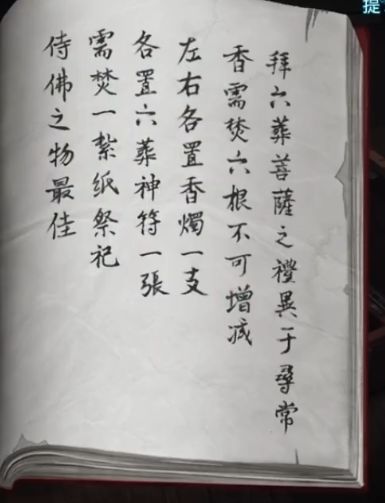 提
拜六葬菩薩之禮異于尋常
香需焚六根不可增减
左右各置香燭一支
各置六葬神符一張
需焚一紮纸祭祀
侍佛之物最佳